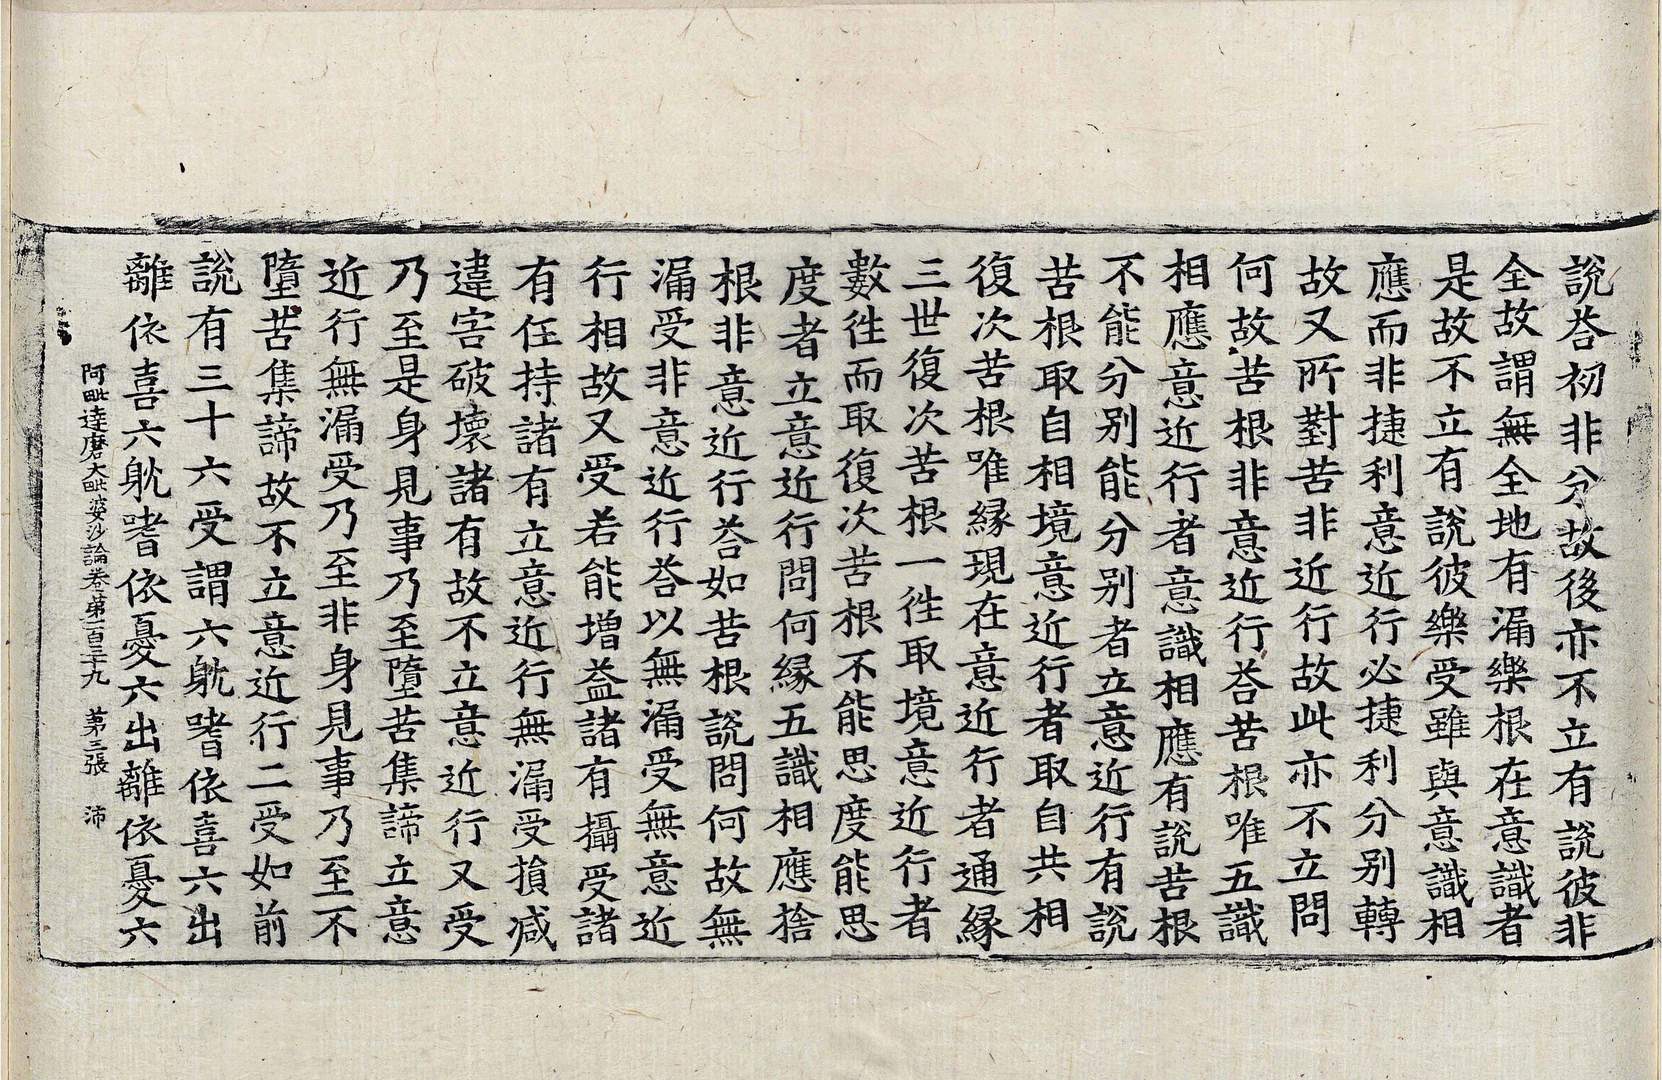 說荅初非分故後亦不立有說彼非
全故謂無全地有漏樂根在意識者
是故不立有說彼樂受雖與意識相
應而非捷利意近行必捷利分别轉
故又所對苦非近行故此亦不立問
何故苦根非意近行荅苦根唯五識
相應意近行者意識相應有說苦根
不能分别能分别者立意近行有說
苦根取自相境意近行者取自共相
復次苦根唯緣現在意近行者通緣
三世復次苦根一徃取境意近行者
數徃而取復次苦根不能思度能思
度者立意近行問何緣五識相應捨
根非意近行荅如苦根說問何故無
漏受非意近行荅以無漏受無意近
行相故又受若能增益諸有攝受諸
有任持諸有立意近行無漏受損减
違害破壞諸有故不立意近行又受
乃至是身見事乃至墮苦集諦立意
近行無漏受乃至非身見事乃至不
墮苦集諦故不立意近行二受如前
說有三十六受謂六躭嗜依喜六出
離依喜六躭嗜依憂六出離依憂六
阿毗達磨大毗婆沙論卷第一百三十九　第三張　沛